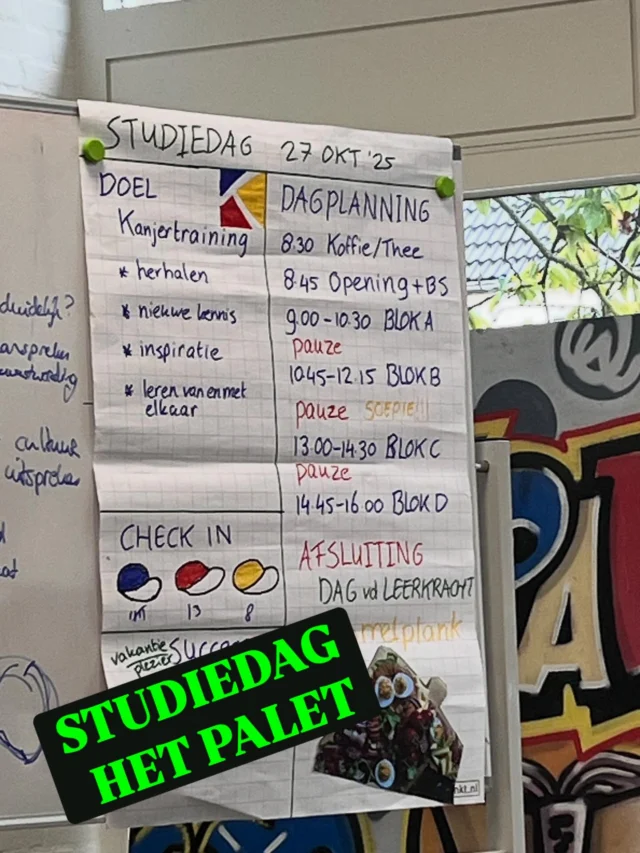 STUDIEDAG 27 OKT '25
DOEL
Kanjertraining
* herhalen
* nieuwe kennis
* inspiratie
* leren van en met
elkaar
DAGPLANNING
8.30 Koffie/Thee
8.45 Opening + BS
9.00-10.30 BLOK A
pauze
10.45-12.15 BLOK B
pauze SOEPIE!!!
13.00-14.30 BLOK C
pauze
14.45-16.00 BLOK D
AFSLUITING
DAG vd LEERKRACHT
CHECK IN
13 8
vakantie
plezier
STUDIEDAG
HET PALET